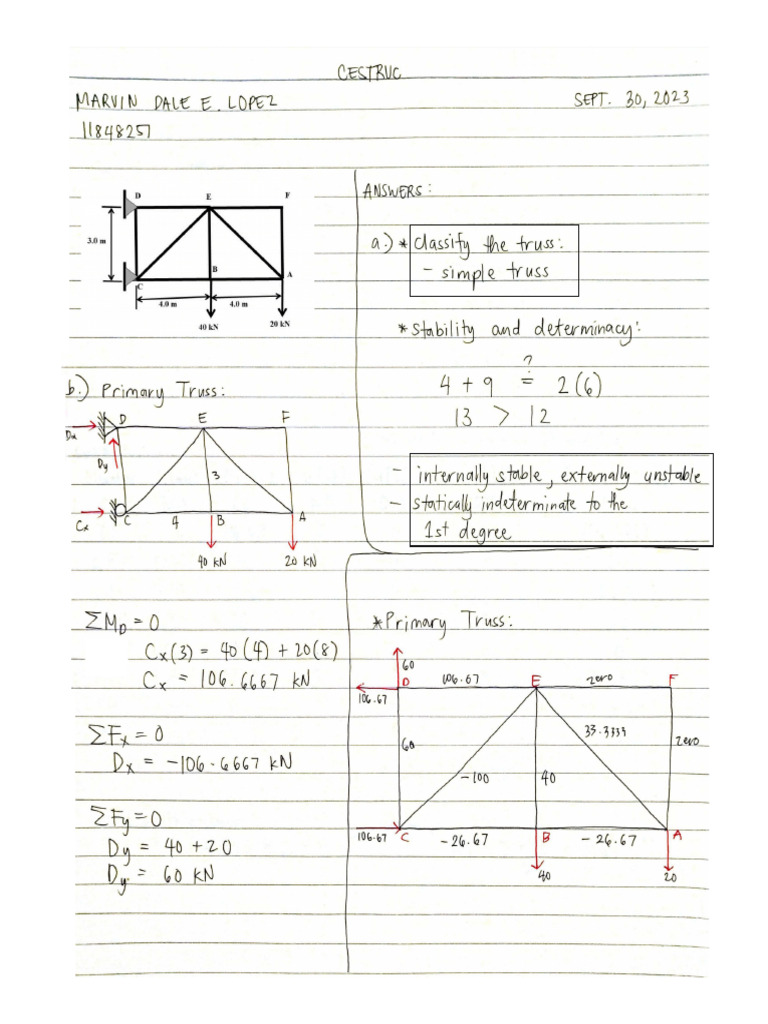 CESTRUC
MARVIN DALE E. LOPEZ
SEPT. 30, 2023
11848257
D
E
F
3.0 m
B
A
C
4.0 m
4.0 m
40 kN
20 kN
ANSWERS:
a.) * Classify the truss:
- simple truss
* Stability and determinacy:
?
4 + 9 = 2(6)
13 > 12
- internally stable, externally unstable
- statically indeterminate to the
1st degree
b.) Primary Truss:
D
E
F
Dx
Dy
3
Cx
C
4
B
A
40 kN
20 kN
ΣMD = 0
Cx(3) = 40(4) + 20(8)
Cx = 106.6667 kN
ΣFx = 0
Dx = -106.6667 kN
ΣFy = 0
Dy = 40 + 20
Dy = 60 kN
* Primary Truss:
60
D
106.67
E
zero
F
106.67
33.3333
60
zero
-100
40
106.67
C
-26.67
B
-26.67
A
40
20